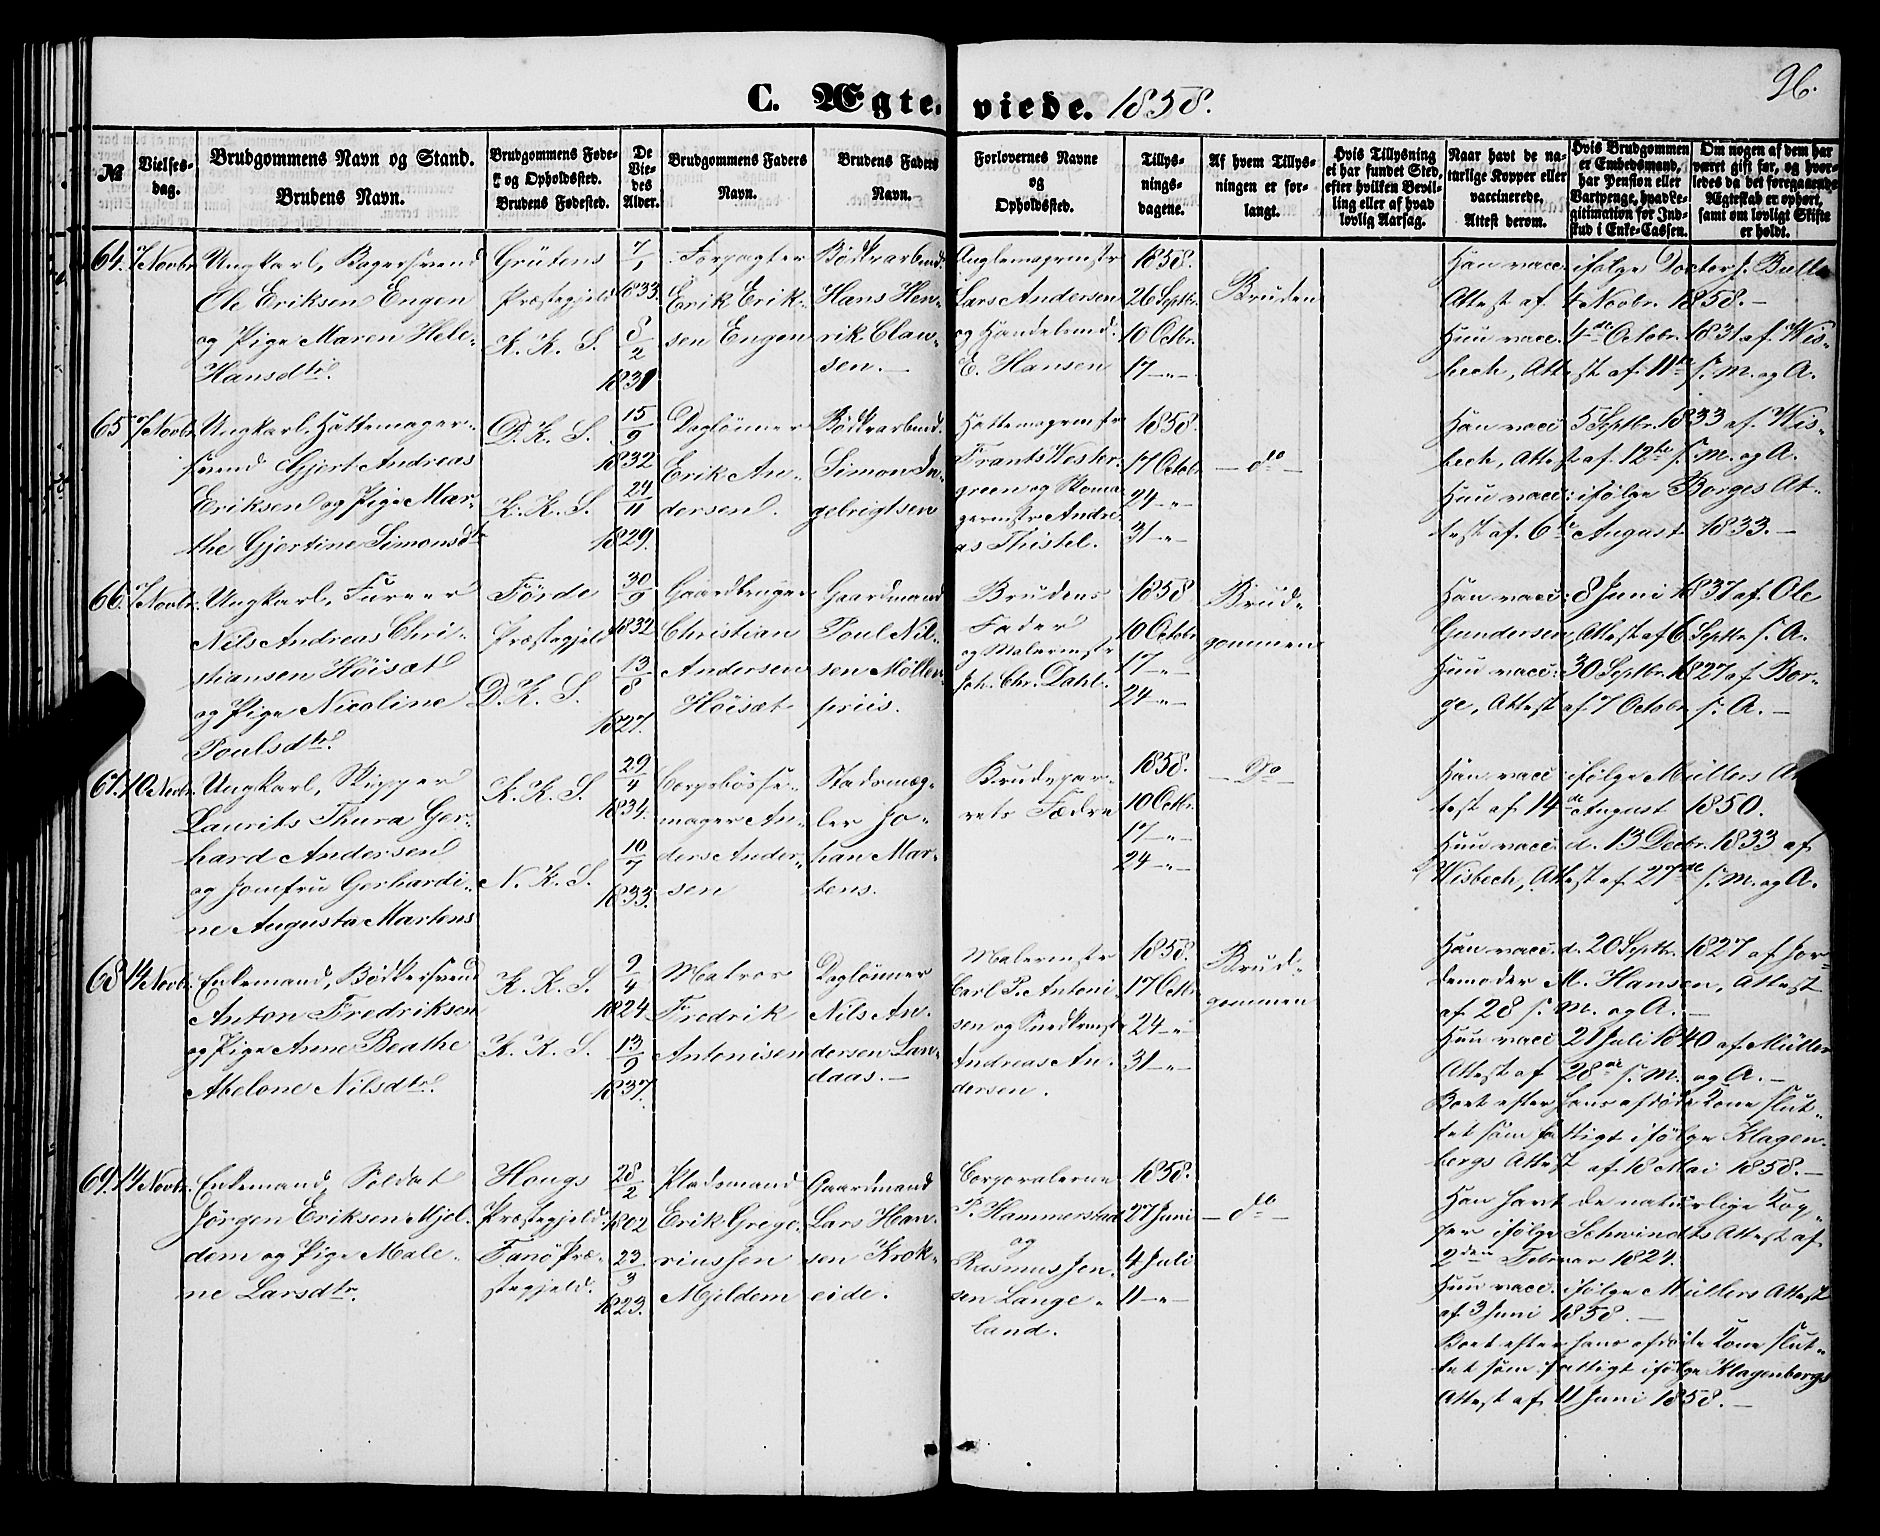 96.
C. Ægte- viede. 1858.
№
Vielses-
dag.
Brudgommens Navn og Stand.
Brudens Navn.
Brudgommens Føde-
og Opholdssted.
Brudens Fødested.
De
Vie-
des
Alder.
Brudgommens Faders
Navn.
Brudens Faders
Navn.
Forlovernes Navne
og
Opholdssted.
Tillys-
nings-
dagene.
Af hvem Tillys-
ningen er for-
langt.
Hvis Tillysning
ei har fundet Sted,
efter hvilken Bevil-
ling eller af hvad
lovlig Aarsag.
Naar havt de na-
turlige Kopper eller
vaccinerede,
Attest derom.
Hvis Brudgommen
er Embedsmand,
har Pension eller
Vartpenge, hvad Le-
gitimation for Ind-
skud i Enke-Cassen.
Om nogen af dem har
været gift før, og hvor-
ledes da det foregaaende
Ægteskab er ophørt,
samt om lovligt Skifte
er holdt.
64. 7 Novbr.
Ungkarl, Bagersvend
Ole Eriksen Engen
og Pige Maren Hele-
Hansdtr.
Grütens
Præstegjeld
K. K. S.
7/1
1833.
8/2
1831
Forpagter
Erik Erik-
sen Engen
Bødkerarbmd.
Hans Hen-
rik Clau-
sen.
Lars Andersen
og Handelsmd.
E. Hansen
1858.
26 Septbr.
10 Octbr.
17 -"-
Bruden
Han vacc. ifølge Doctor J. Bulls
Attest af 4 Novbr. 1858.-
Hun vacc. 4de Octobr. 1831 af Wis-
bech, Attest af 11te s. M. og A.
65 7 Novbr.
Ungkarl, Hattemager-
svend Gjert Andreas
Eriksen og Pige Mar-
the Gjertine Simonsdtr
D. K. S.
K. K. S.
15/9
1832
24/11
1829.
Daglønner
Erik An-
dersen.
Bødkerarbmd.
Simon In-
gebrigtsen
Hattemagermstr
Frants Wester-
green og Skoma-
germstr Andre-
as Thistel.
1858.
17 Octobr.
24 -"-
31 -"-
- do -
Han vacc. 5 Septbr. 1833 af Wis-
bech, Attest af 12te s. M. og A.
Hun vacc. ifølge Borges At-
test af 6te August 1833.-
66. 7 Novbr.
Ungkarl, Fureer
Nils Andreas Chri-
stiansen Höisæt
og Pige Nicoline
Poulsdtr.
Förde
Præstegjeld
D. K. S.
30/9
1832
13/8
1827.
Gaardbruger
Christian
Andersen
Höisæt
Gaardmand
Poul Nil-
sen Möllen-
priis.
Brudens
Fader
og Malermstr
Joh. Chr. Dahl.
1858
10 Octobr.
17 -"-
24 -"-
Brud-
gommen
Han vacc: 8 Juni 1837 af Ole
Gundersen, Attest af 6 Septbr s. A.
Hun vacc: 30 Septbr. 1827 af Bor-
ge, Attest af 7 Octobr. s. A.-
67. 10 Novbr.
Ungkarl, Skipper
Laurits Thura Ger-
hard Andersen
og Jomfru Gerhardi-
ne Augusta Martens
K. K. S.
N. K. S.
29/4
1834.
10/7
1833.
Corpsbösse-
mager An-
ders Ander-
sen
Stadsmæg-
ler Jo-
han Mar-
tens.
Brudepar-
rets Fædre
1858.
10 Octbr.
17 -"-
24 -"-
- Do -
Han vacc: ifølge Müllers At-
test af 14de August 1850.
Hun vacc: d. 13 Decbr. 1833 af
Wisbech, Attest af 27de s. M. og A.
68 14 Novbr.
Enkemand, Bødkersvend
Anton Fredriksen
og Pige Anne Beathe
Abelone Nilsdtr.
K. K. S.
K. K. S.
9/4
1824
13/9
1837.
Matros
Fredrik
Antonisen
Daglønner
Nils An-
dersen Lan-
daas.-
Malermstr
Carl P. Antoni-
sen og Snedkermstr
Andreas An-
dersen.
1858.
17 Octbr
24 -"-
31 -"-
Brud-
gommen
Han vacc: d. 20 Septbr. 1827 af Jor-
demoder M. Hansen, Attest
af 28 s. M. og A.
Hun vacc 21 Juli 1840 af Müller
Attest af 28de s. M. og A.-
Boet efter hans afdøde Kone slut-
tet som fattigt ifølge Klagen-
bergs Attest af 18 Mai 1858.-
69. 14 Novbr.
Enkemand, Soldat
Jörgen Eriksen Mjel-
dem og Pige Male-
ne Larsdtr.
Hougs
Præstegjeld.
Fanö Præ-
stegjeld.
28/2
1802
23/3
1823.
Pladsmand
Erik Grego-
riussen
Mjeldem
Gaardmand
Lars Han-
sen Krok-
eide.
Corporalerne
P. Hammerstad
og
Rasmus Jen-
sen Lange-
land.
1858.
27 Juni
4 Juli
11 -"-
- do -
Han havt de naturlige Kop-
per ifølge Schwindts Attest af
2den Februar 1824.
Hun vacc. ifølge Müllers Attest
af 3 Juni 1858.-
Boet efter hans afdøde Kone slut-
tet som fattigt ifølge Klagenbergs
Attest af 11 Juni 1858.-